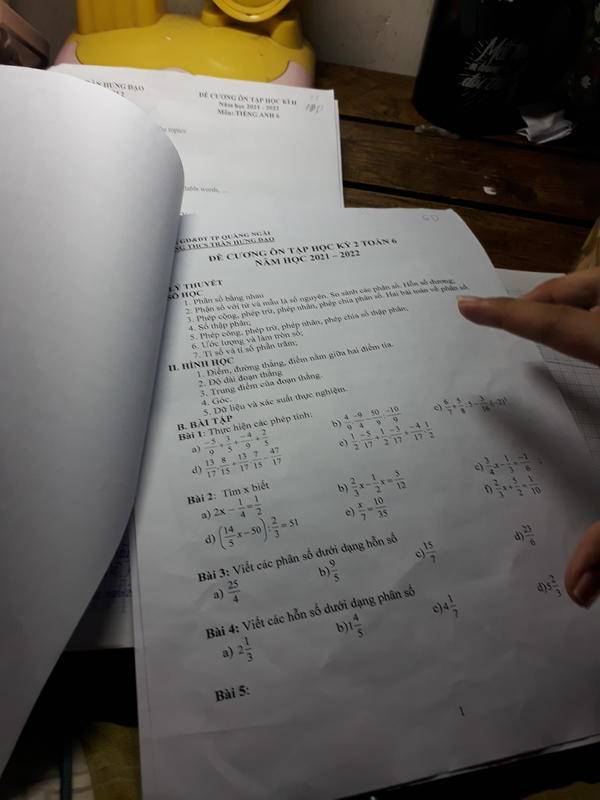 ẦN HƯNG ĐẠO
ĐỀ CƯƠNG ÔN TẬP HỌC KÌ II
Năm học 2021 - 2022
Môn: TIẾNG ANH 6
topics
words, ...
GD&ĐT TP QUẢNG NGÃI
THCS TRẦN HƯNG ĐẠO
ĐỀ CƯƠNG ÔN TẬP HỌC KỲ 2 TOÁN 6
NĂM HỌC 2021 – 2022
LÝ THUYẾT
SỐ HỌC
1. Phân số bằng nhau
2. Phân số với tử và mẫu là số nguyên. So sánh các phân số. Hỗn số dương;
3. Phép cộng, phép trừ, phép nhân, phép chia phân số. Hai bài toán về phân số.
4. Số thập phân;
5. Phép cộng, phép trừ, phép nhân, phép chia số thập phân;
6. Ước lượng và làm tròn số;
7. Tỉ số và tỉ số phần trăm;
II. HÌNH HỌC
1. Điểm, đường thẳng, điểm nằm giữa hai điểm
2. Độ dài đoạn thẳng
3. Trung điểm của đoạn thẳng.
4. Góc.
5. Dữ liệu và xác suất thực nghiệm.
B. BÀI TẬP
Bài 1: Thực hiện các phép tính:
a) -5/9 + 3/5 + -4/9 + 2/5 b) c)
d) 13/17 . 8/15 + 13/17 . 7/15 - 47/17 e)
Bài 2: Tìm x biết
a) 2x - 1/4 = 1/2 b) 2/3 x - 1/2 x = 5/12 c) 3/4 x - 1/3 = -1/6
d) (14/5 x - 50) : 2/3 = 51 e) x/7 = 10/35 f) 2/3 x + 5/2 = 1/10
Bài 3: Viết các phân số dưới dạng hỗn số
a) 25/4 b) 9/5 c) 15/7 d) 23/6
Bài 4: Viết các hỗn số dưới dạng phân số
a) 2 1/3 b) 1 4/5 c) 4 1/7 d) 5 2/3
Bài 5:
1